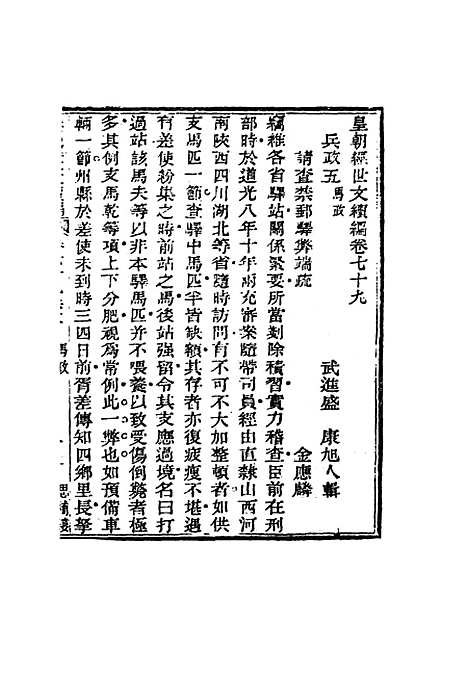 皇朝經世文續編卷七十九
武進盛　康旭人輯
兵政五馬政
請查禁郵驛弊端疏　金應麟
竊維各省驛站關係緊要所當剗除積習實力稽查臣前在刑
部時於道光八年十年兩充審案隨帶司員經由直隸山西河
南陝西四川湖北等省隨時訪問有不可不大加整頓者如供
支馬匹一節查驛中馬匹半皆缺額其存者亦復疲瘦不堪遇
有差使紛集之時前站之馬後站强留令其支應過境名曰打
過站該馬夫等以非本驛馬匹並不喂養以致受傷倒斃者極
多其倒支馬乾等項上下分肥視為常例此一弊也如預備車
輛一節州縣於差使未到時三四日前胥差傳知四鄉里長拏
馬政
思補樓